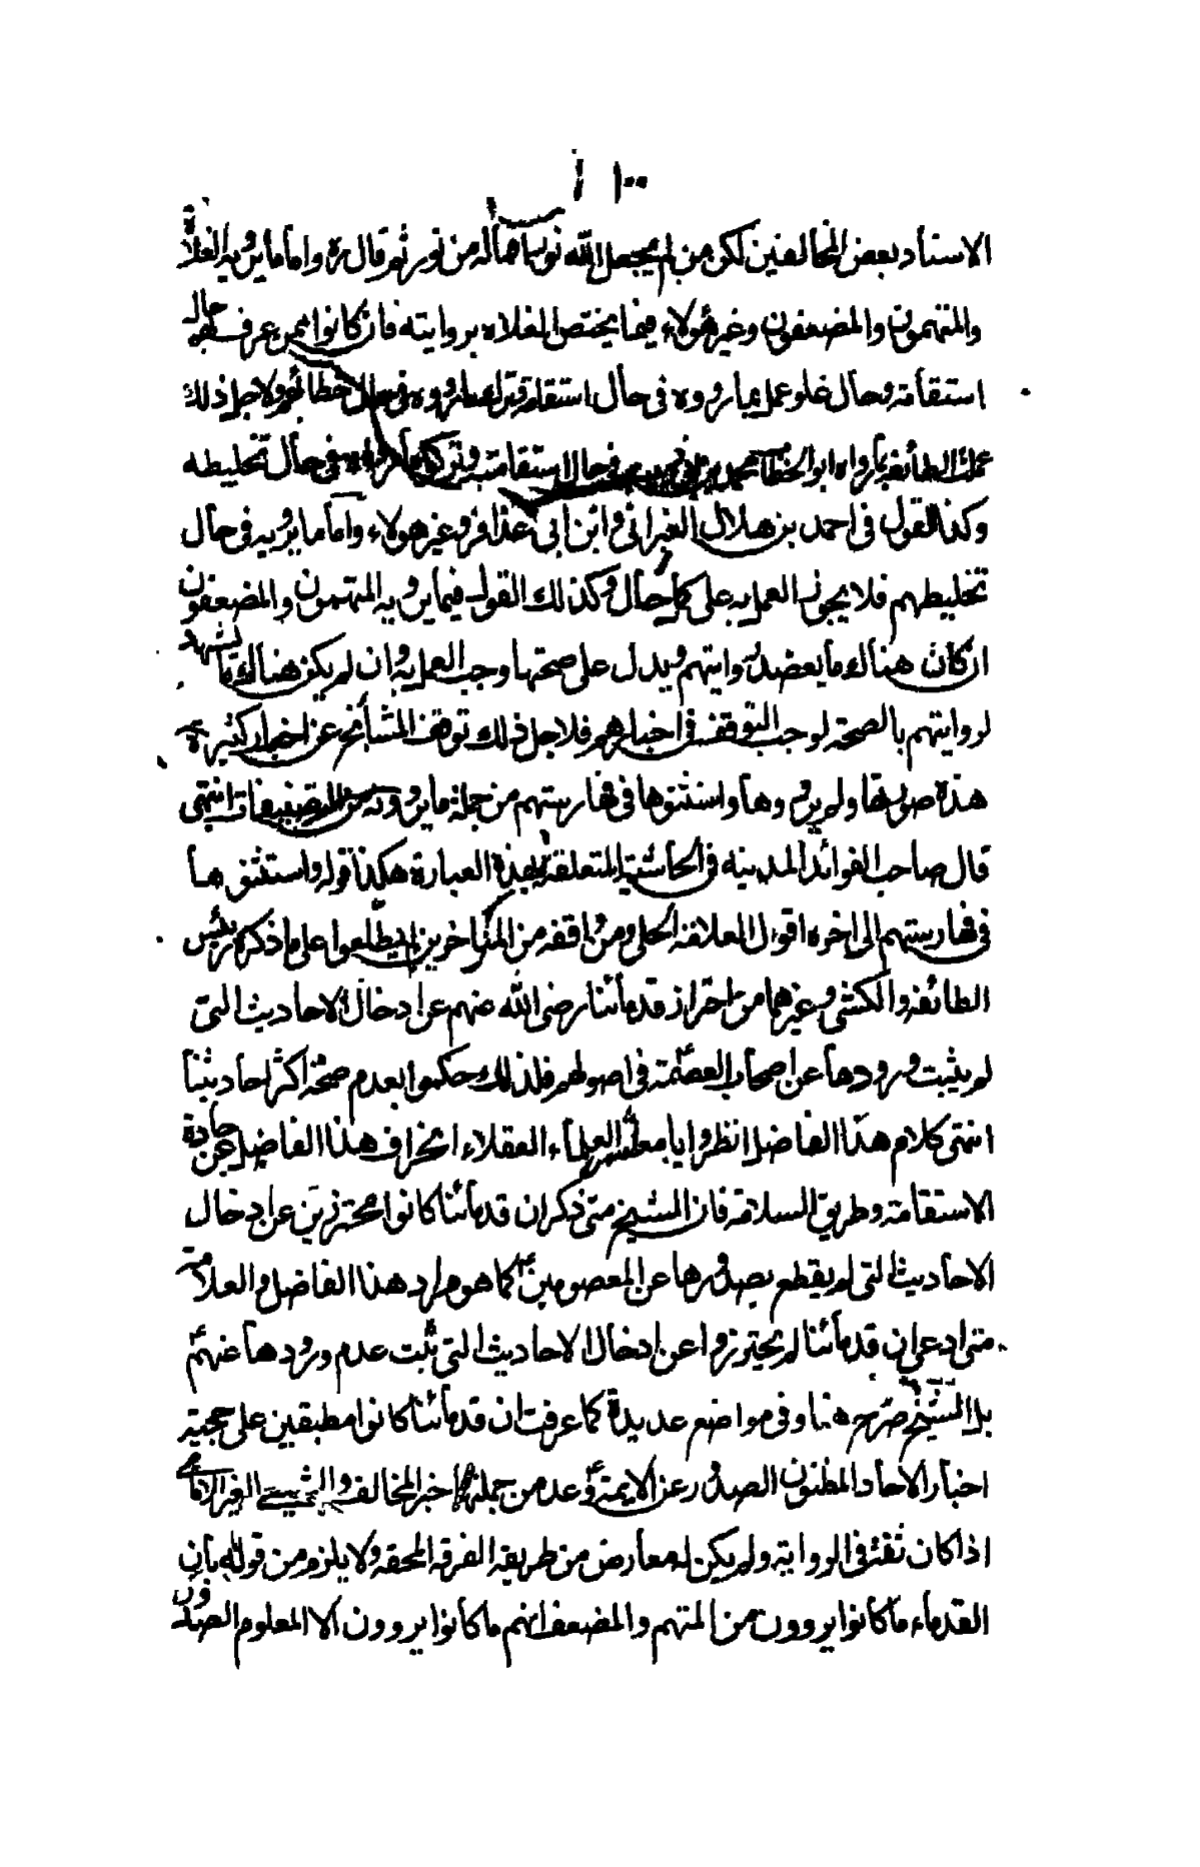 ١٠٠
الاسناد بعض المخالفين لكن من لم يجعل الله نورا فما له من نور ثم قال ره واما ما يرويه الغلاة
والمتهمون والمضعفون وغير هؤلاء فيما يختص الغلاه بروايته فان كانوا ممن عرف لهم حال
استقامة وحال غلو عمل بما رووه في حال استقامتهم وترك ما رووه في حال خطائهم ولاجل ذلك
عملت الطائفة بما رواه ابو الخطاب محمد بن ابي زينب في حال استقامته وتركوا ما رواه في حال تخليطه
وكذا القول في احمد بن هلال العبرتائي وابن ابي عذافر وغير هولاء واما ما يرويه في حال
تخليطهم فلا يجوز العمل به على كل حال وكذلك القول فيما يرويه المتهمون والمضعفون
ان كان هناك ما يعضد روايتهم ويدل على صحتها وجب العمل به وان لم يكن هناك ما يشهد
لروايتهم بالصحة لوجب التوقف في اخبارهم فلاجل ذلك توقف المشايخ عن اخبار كثيرة
هذه صورتها ولم يرووها واستثنوها في فهارستهم من جملة ما يروونه من التصنيفات انتهى
قال صاحب الفوائد المدنيه في الحاشية المتعلقة بهذه العبارة هكذا قوله واستثنوها
في فهارستهم الى اخره اقول العلامة الحلي ومن وافقه من المتاخرين لم يطلعوا على ما ذكره رئيس
الطائفة والكشي وغيرهما من احتراز قدمائنا رضى الله عنهم عن ادخال الاحاديث التى
لم يثبت ورودها عن اصحاب العصمة في اصولهم فلذلك حكموا بعدم صحة اكثر احاديثنا
انتهى كلام هذا الفاضل انظروا يا معشر العلماء العقلاء انحراف هذا الفاضل عن جادة
الاستقامة وطريق السلامة فان الشيخ متى ذكر ان قدمائنا كانوا محترزين عن ادخال
الاحاديث التى لم يقطع بصدورها عن المعصومين ع كما هو مراد هذا الفاضل والعلامة
متى ادعى ان قدمائنا لم يحترزوا عن ادخال الاحاديث التى ثبت عدم ورودها عنهم ع
بل الشيخ صرح هنا وفي مواضع عديدة كما عرفت ان قدمائنا كانوا مطبقين على حجية
اخبار الاحاد المظنون الصدور عن الايمة ع وعد من جملتها خبر المخالف والشيعي الغير الامامي
اذا كان ثقة في الرواية ولم يكن له معارض من طريقه الفرقه المحقه ولا يلزم من قوله بان
القدماء ما كانوا يروون من المتهم والمضعف انهم ما كانوا يروون الا المعلوم الصدور